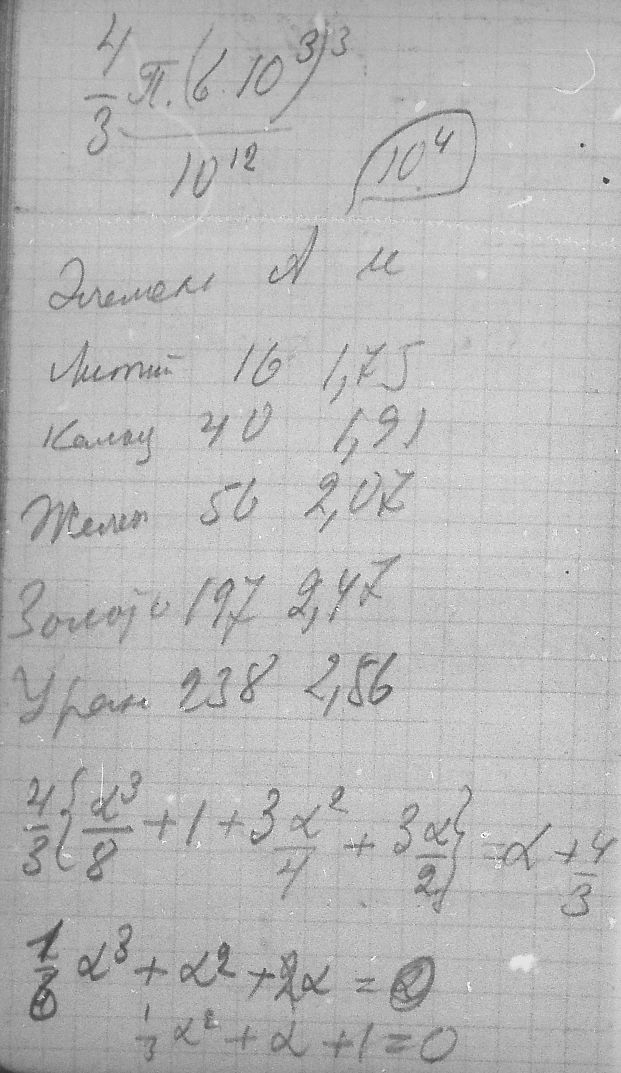 4/3 π·(6·10³)³ / 10¹² 10⁴
Элемент A м
Литий 16 1,75
Кальц 40 1,91
Желез 56 2,07
Золото 197 2,47
Уран 238 2,56
4/3 {α³/8 + 1 + 3α²/4 + 3α/2} = α + 4/3
1/6 α³ + α² + 2α = α
1/3 α² + α + 1 = 0